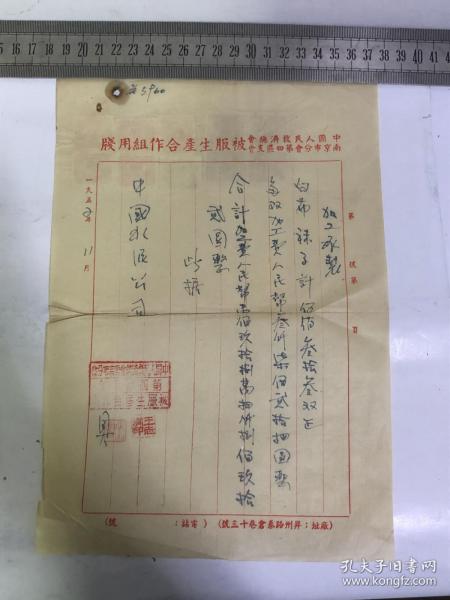 中國人民救濟總會
南京市分會第四區支會
被服生產合作組用牋
第 號第 頁
加工承製
白布襪子計伍佰叁拾叁双正
每双加工費人民幣叁仟柒佰貳拾肆圓整
合計加工費人民幣壹佰玖拾捌萬肆仟捌佰玖拾
貳圓整
此據
中國水泥公司
一九五 年 11 月
(廠址:昇州路泰倉巷十三號)(電話: 號)
孔夫子旧书网
www.kongfz.com